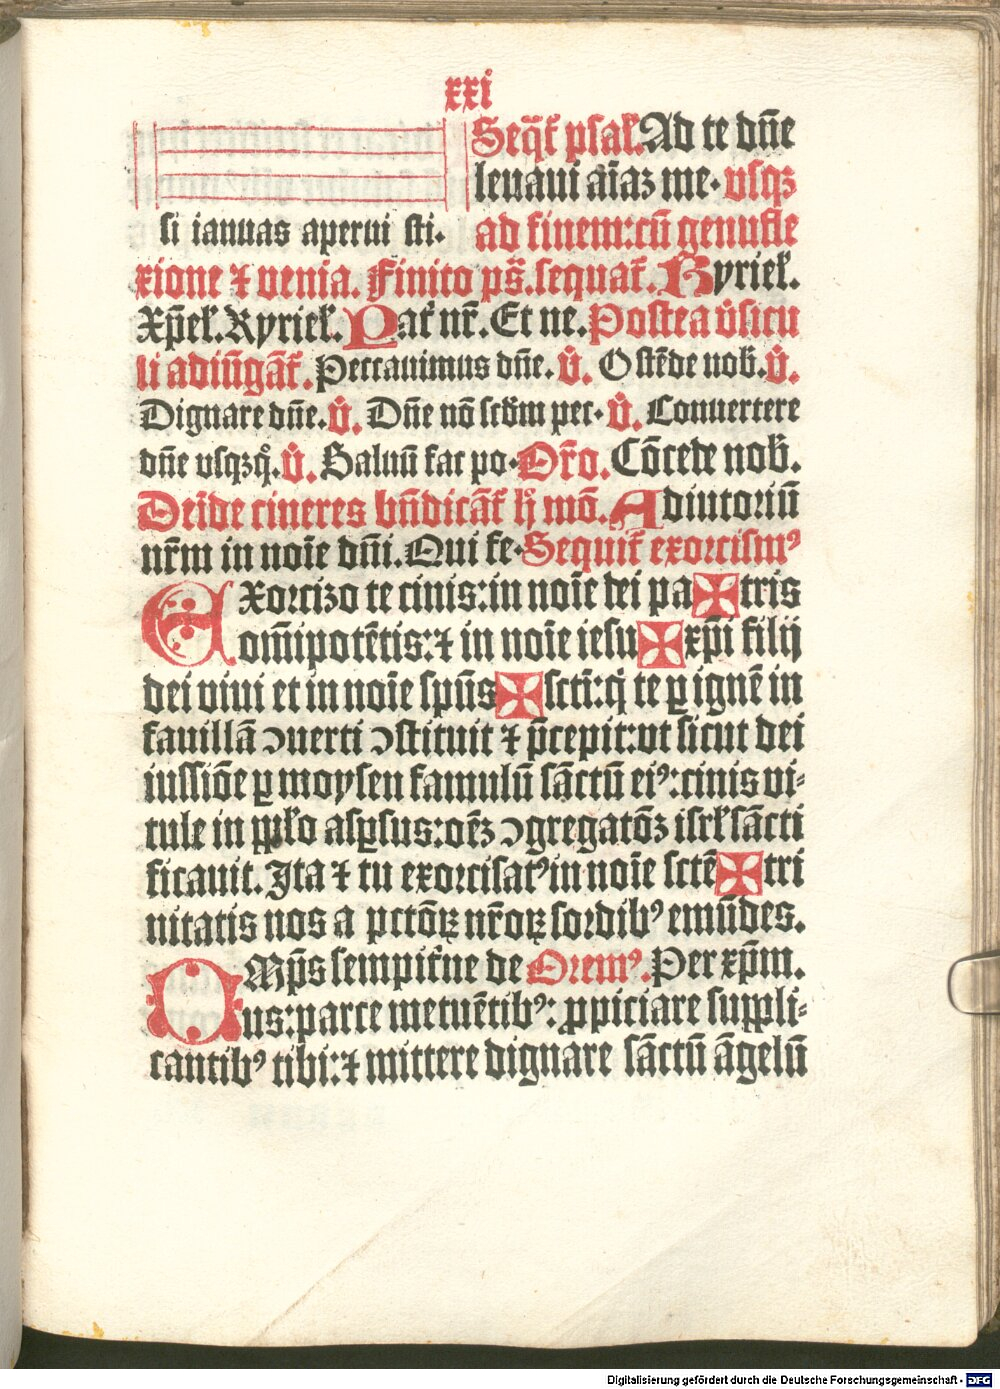 xxi
Seq̄t᷑ psal᷑. Ad te dn̄e
leuaui āiaꝫ me. vsqꝫ
si ianuas aperui sti. ad finem: cū genufle
xione ⁊ venia. Finito ps̄. sequat᷑. Kyriel᷑.
Xp̄el᷑. Kyriel᷑. Pat᷑ nr̄. Et ne. Postea v᷑sicu
li adiūgāt᷑. Peccauimus dn̄e. v᷑. Ostēde nob᷑. v᷑.
Dignare dn̄e. v᷑. Dn̄e nō scd̄m pec. v᷑. Conuertere
dn̄e vsqꝫq̊. v᷑. Saluū fac po. Or̄o. Cōcede nob᷑.
Deīde cineres bn̄dicāt᷑ h̥ mō. Adiutoriū
nr̄m in noīe dn̄i. Qui fe. Sequit᷑ exorcismꝰ
Exorcizo te cinis: in noīe dei pa ✠ tris
om̄ipotētis: ⁊ in noīe iesu ✠ xp̄i filij
dei viui et in noīe sp̄us ✠ scti: q̇ te ꝑ ignē in
fauillā ꝯuerti ꝯstituit ⁊ p̄cepit: vt sicut dei
iussiōe ꝑ moysen famulū sāctū eiꝰ: cinis vi⸗
tule in ppl᷑o aspersus: oēꝫ ꝯgregatōꝫ isrl᷑ sācti
ficauit. Ita ⁊ tu exorcisatꝰ in noīe sctē ✠ tri
nitatis nos a pctōꝝ nr̄oꝝ sordibꝰ emūdes.
OMp̄s sempit᷑ne de Oremꝰ. Per xp̄m.
us: parce metuētibꝰ: ꝓpiciare suppli⸗
cantibꝰ tibi: ⁊ mittere dignare sāctū āgelū
Digitalisierung gefördert durch die Deutsche Forschungsgemeinschaft - DFG